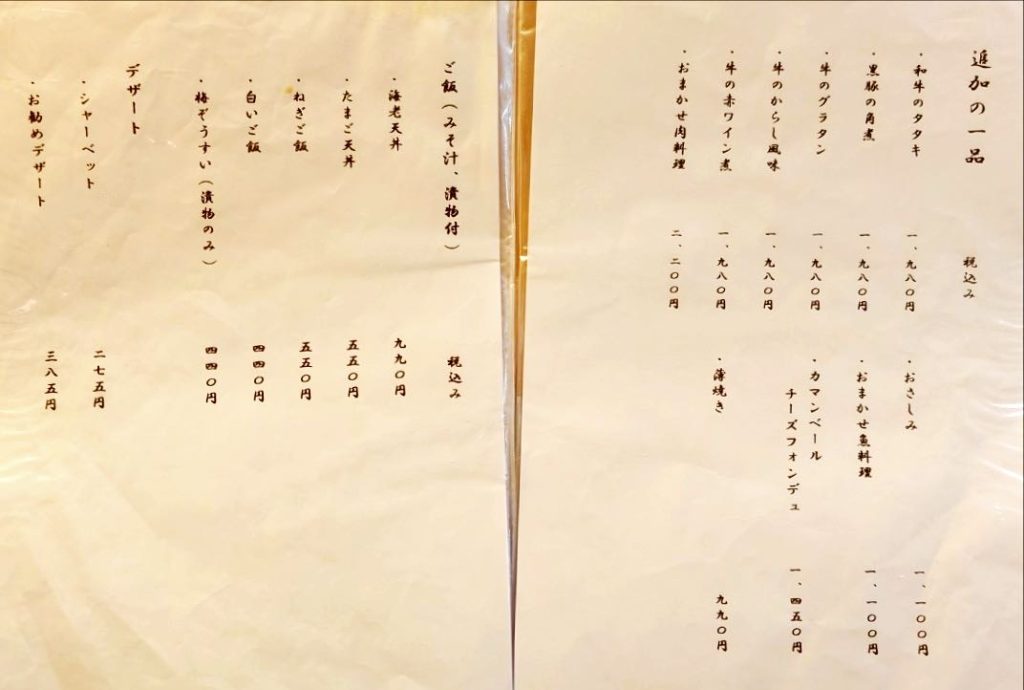 追加の一品
税込み
・和牛のタタキ
一、九八〇円
・黒豚の角煮
一、九八〇円
・牛のグラタン
一、九八〇円
・牛のからし風味
一、九八〇円
・牛の赤ワイン煮
一、九八〇円
・おまかせ肉料理
二、二〇〇円
・おさしみ
一、一〇〇円
・おまかせ魚料理
一、一〇〇円
・カマンベール
チーズフォンデュ
一、四五〇円
・薄焼き
九九〇円
ご飯（みそ汁、漬物付）
税込み
・海老天丼
九九〇円
・たまご天丼
五五〇円
・ねぎご飯
五五〇円
・白いご飯
四四〇円
・梅ぞうすい（漬物のみ）
四四〇円
デザート
・シャーベット
二七五円
・お勧めデザート
三八五円